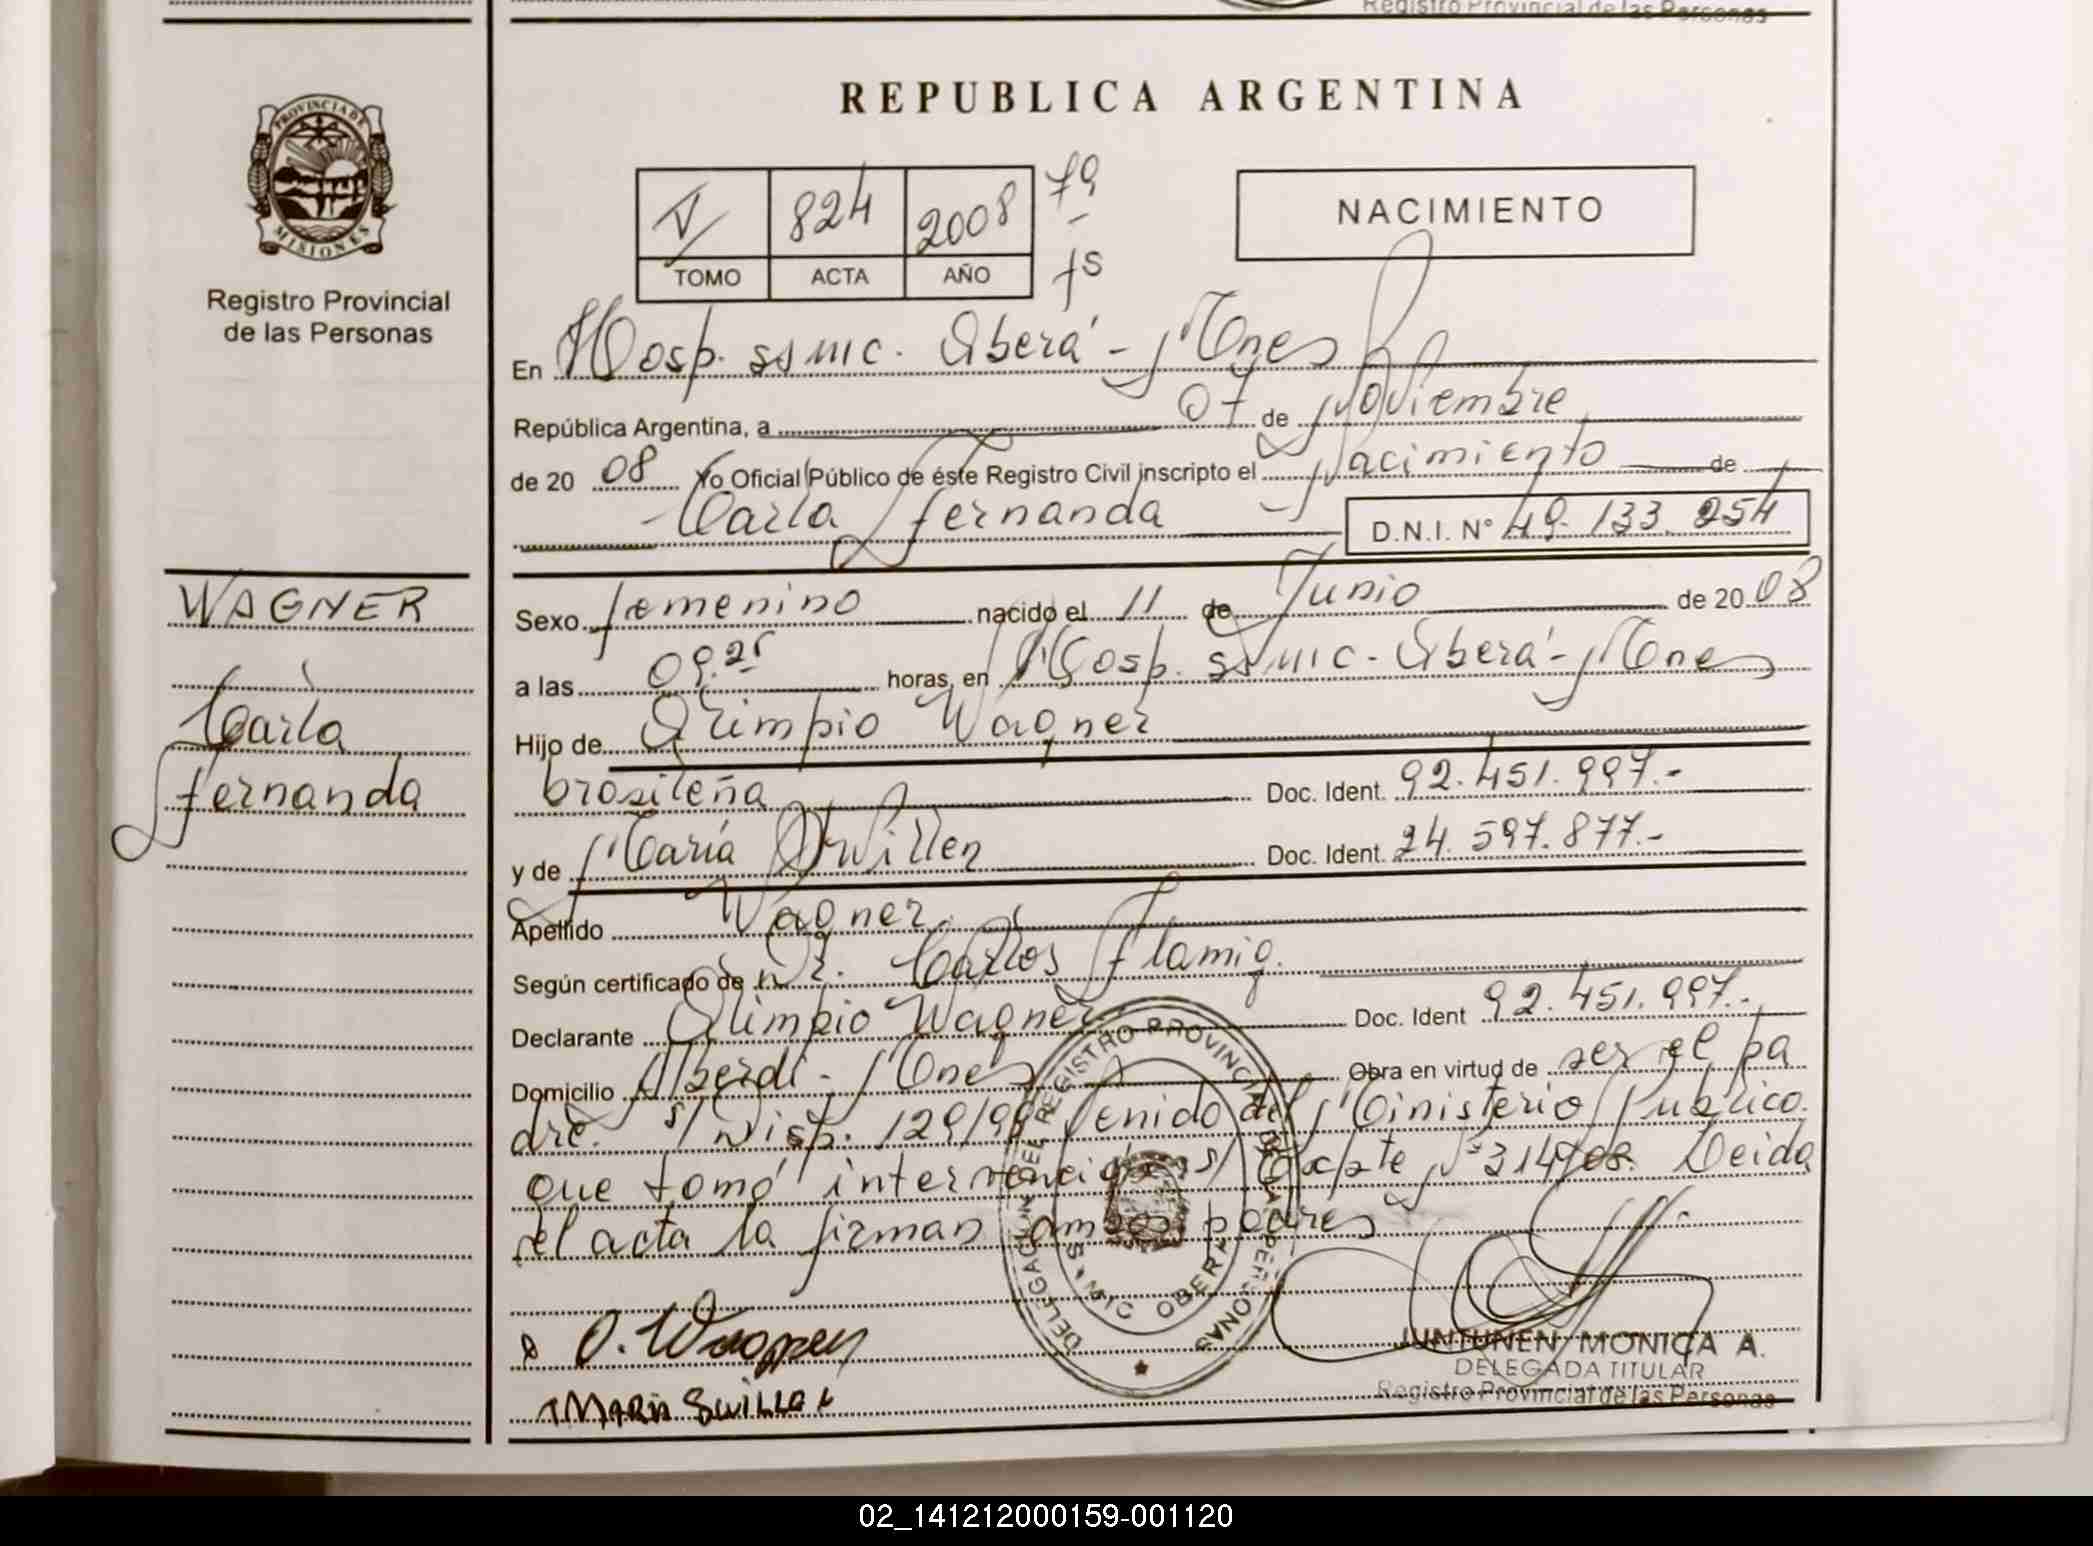 Registro Provincial de las Personas
REPUBLICA ARGENTINA
PROVINCIA DE
MISIONES
Registro Provincial
de las Personas
V 824 2008 79
TOMO ACTA AÑO fs
NACIMIENTO
En Hosp. SSMIC. Oberá - Mnes
República Argentina, a 07 de Noviembre
de 20 08 Yo Oficial Público de éste Registro Civil inscripto el Nacimiento de
Carla Fernanda D.N.I. N° 49.133.254
WAGNER
Carla
Fernanda
Sexo femenino nacido el 11 de Junio de 20 08
a las 09.25 horas, en Hosp. SSMIC - Oberá - Mnes
Hijo de Olimpio Wagner
brasileña Doc. Ident. 92.451.997.-
y de María Swillen Doc. Ident. 24.597.877.-
Apellido Wagner
Según certificado de Dr. Carlos Flamig.
Declarante Olimpio Wagner Doc. Ident 92.451.997.-
Domicilio Alberdi - Mnes Obra en virtud de ser el pa
dre. s/ Disp. 129/98 Venido del Ministerio Publico
que tomó intervención s/ Expte N° 314/08. Leida
el acta la firman ambos padres
DELEGACION DEL REGISTRO PROVINCIAL DE LAS PERSONAS
SSMIC OBERA
O. Wagner
MARIA
JUNTUNEN MONICA A.
DELEGADA TITULAR
Registro Provincial de las Personas
02_141212000159-001120